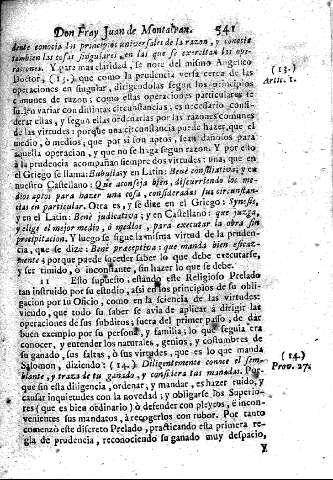 Don Fray Juan de Montalvan. 541
dente conozca los principios universales de la razon, y conozca
tambien las cosas singulares, en las que se exercitan las ope-
raciones. Y para mas claridad, se note del mismo Angelico
Doctor, (13.) que como la prudencia versa cerca de las
operaciones en singular, dirigendolas segun los principios
comunes de razon; como estas operaciones particulares se
varian con distintas circunstancias, es necesario consi-
derar ellas, y segun ellas ordenarlas por las razones comunes
de las virtudes: porque una circunstancia puede hazer, que el
medio, ò medios, que por si son aptos, sean dañosos para
aquella operacion, y que no se haga segun razon. Y por esto
à la prudencia acompañan siempre dos virtudes: una, que en
el Griego se llama: Bubulia; y en Latin: Benè consiliativa; y en
nuestro Castellano: Que aconseja bien, discurriendo los me-
dios aptos para hazer una cosa, consideradas sus circunstan-
cias particulares. Otra es, y se dize en el Griego: Synesis,
y en el Latin: Benè judicativa; y en Castellano: que juzga,
y elige el mejor medio, ò medios, para executar la obra sin
precipitacion. Y luego se sigue la misma virtud de la pruden-
cia, que se dize: Benè praeceptiva: que manda bien eficaz-
mente; porque puede suceder saber lo que debe executarse,
y ser timido, ò inconstante, sin hazer lo que se debe.
11 Esto supuesto, estando este Religioso Prelado
tan instruido por su estudio, assi en los principios de su obli-
gacion por su Oficio, como en la sciencia de las virtudes:
viendo, que todo su saber se avia de aplicar à dirigir las
operaciones de sus subditos; fuera del primer passo, de dar
buen exemplo por su persona, y familia; lo que seguia era
conocer, y entender los naturales, genios, y costumbres de
su ganado, sus faltas, ò sus virtudes, que es lo que manda
Salomon, diziendo: (14.) Diligentemente conoce el sem-
blante, y traza de tu ganado, y considera tus manadas. Por-
que sin esta diligencia, ordenar, y mandar, es hazer ruido, y
causar inquietudes con la novedad; y obligarse los Superio-
res (que es bien ordinario) ò defender con pleytos, è incon-
venientes sus mandatos, à recogerlos con rubor. Por tanto
comenzò este discreto Prelado, practicando esta primera re-
gla de prudencia, reconociendo su ganado muy despacio,
y
(13.)
Artic. 1.
(14.)
Prov. 27.